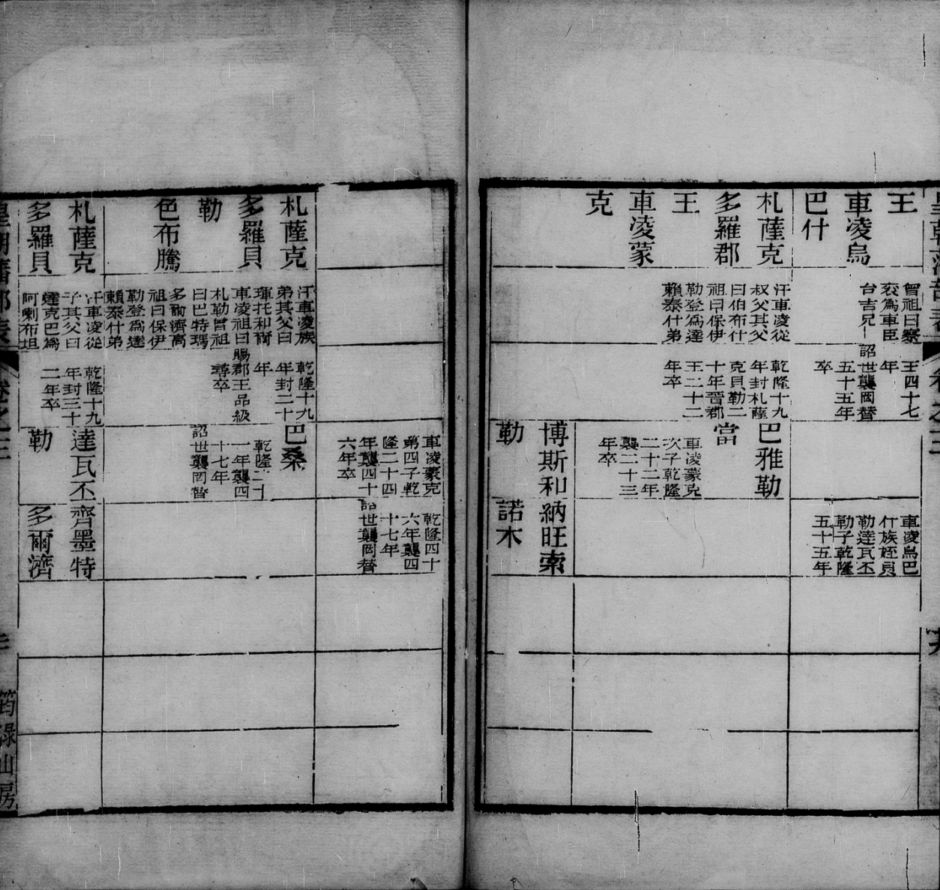 王
車凌烏
巴什
曾祖曰察
袞為車臣
台吉兄
王四十七
年
詔世襲罔替
五十五年
卒
車凌烏巴
什族姪貝
勒達瓦丕
勒子乾隆
五十五年
札薩克
多羅郡
王
車凌蒙
克
汗車凌從
叔父其父
曰伯布什
祖曰保伊
勒登為達
賴泰什弟
乾隆十九
年封札薩
克貝勒二
十年晉郡
王二十二
年卒
巴雅勒
當
車凌蒙克
次子乾隆
二十二年
襲二十三
年卒
博斯和
勒
納旺索
諾木
車凌蒙克
第四子乾
隆二十四
年襲四十
六年卒
乾隆四十
六年襲四
十七年
詔世襲罔替
札薩克
多羅貝
勒
色布騰
汗車凌族
弟其父曰
琿托和爾
車凌祖曰
札勒曾祖
曰巴特瑪
多爾濟高
祖曰保伊
勒登為達
賴泰什弟
乾隆十九
年封二十
年
賜郡王品級
尋卒
巴桑
乾隆二十
一年襲四
十七年
詔世襲罔替
札薩克
多羅貝
汗車凌從
子其父曰
達克巴為
阿喇布坦
乾隆十九
年封三十
二年卒
達瓦丕
勒
齊墨特
多爾濟
皇朝藩部表
卷之三
筠淥山房